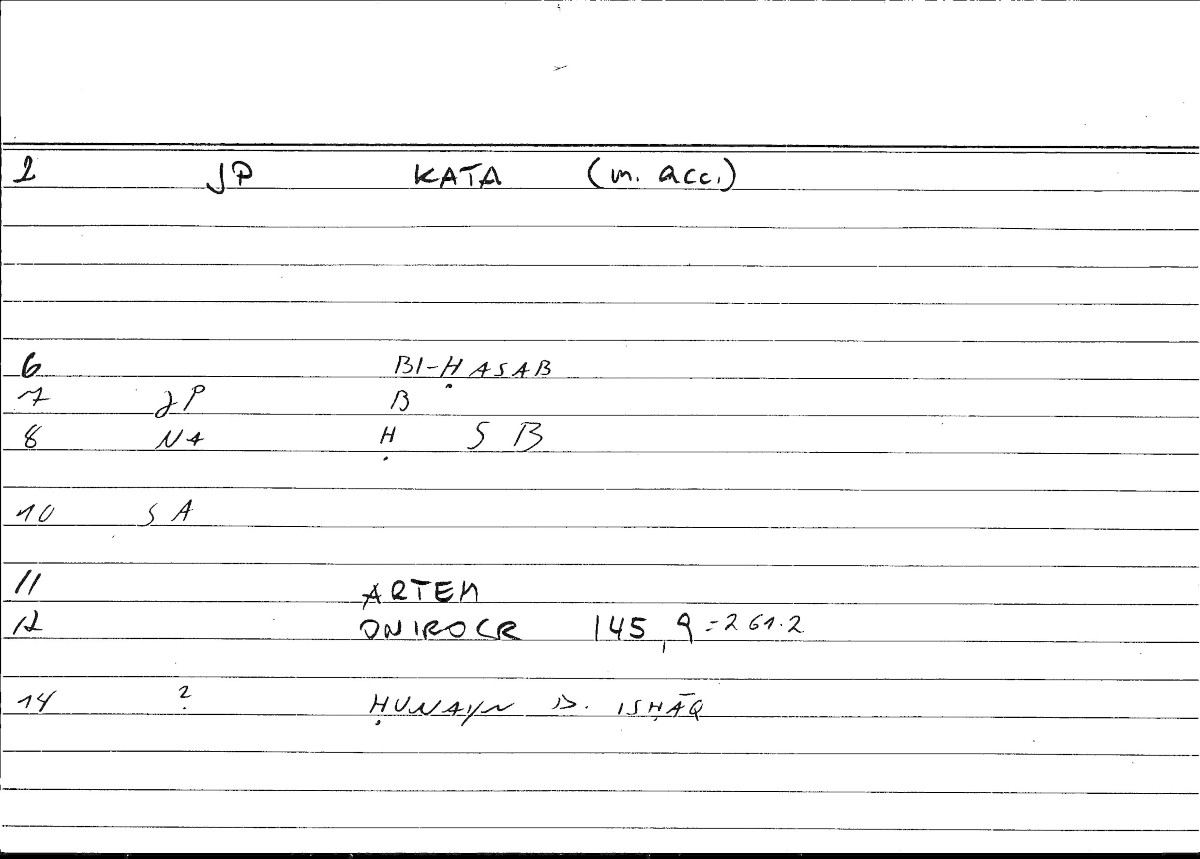 2 JP KATA (m. acc.)
6 BI-ḤASAB
7 JP B
8 NA Ḥ S B
10 SA
11 ARTEM
12 ONIROCR 145,9=261.2
14 ? ḤUNAYN B. ISḤĀQ